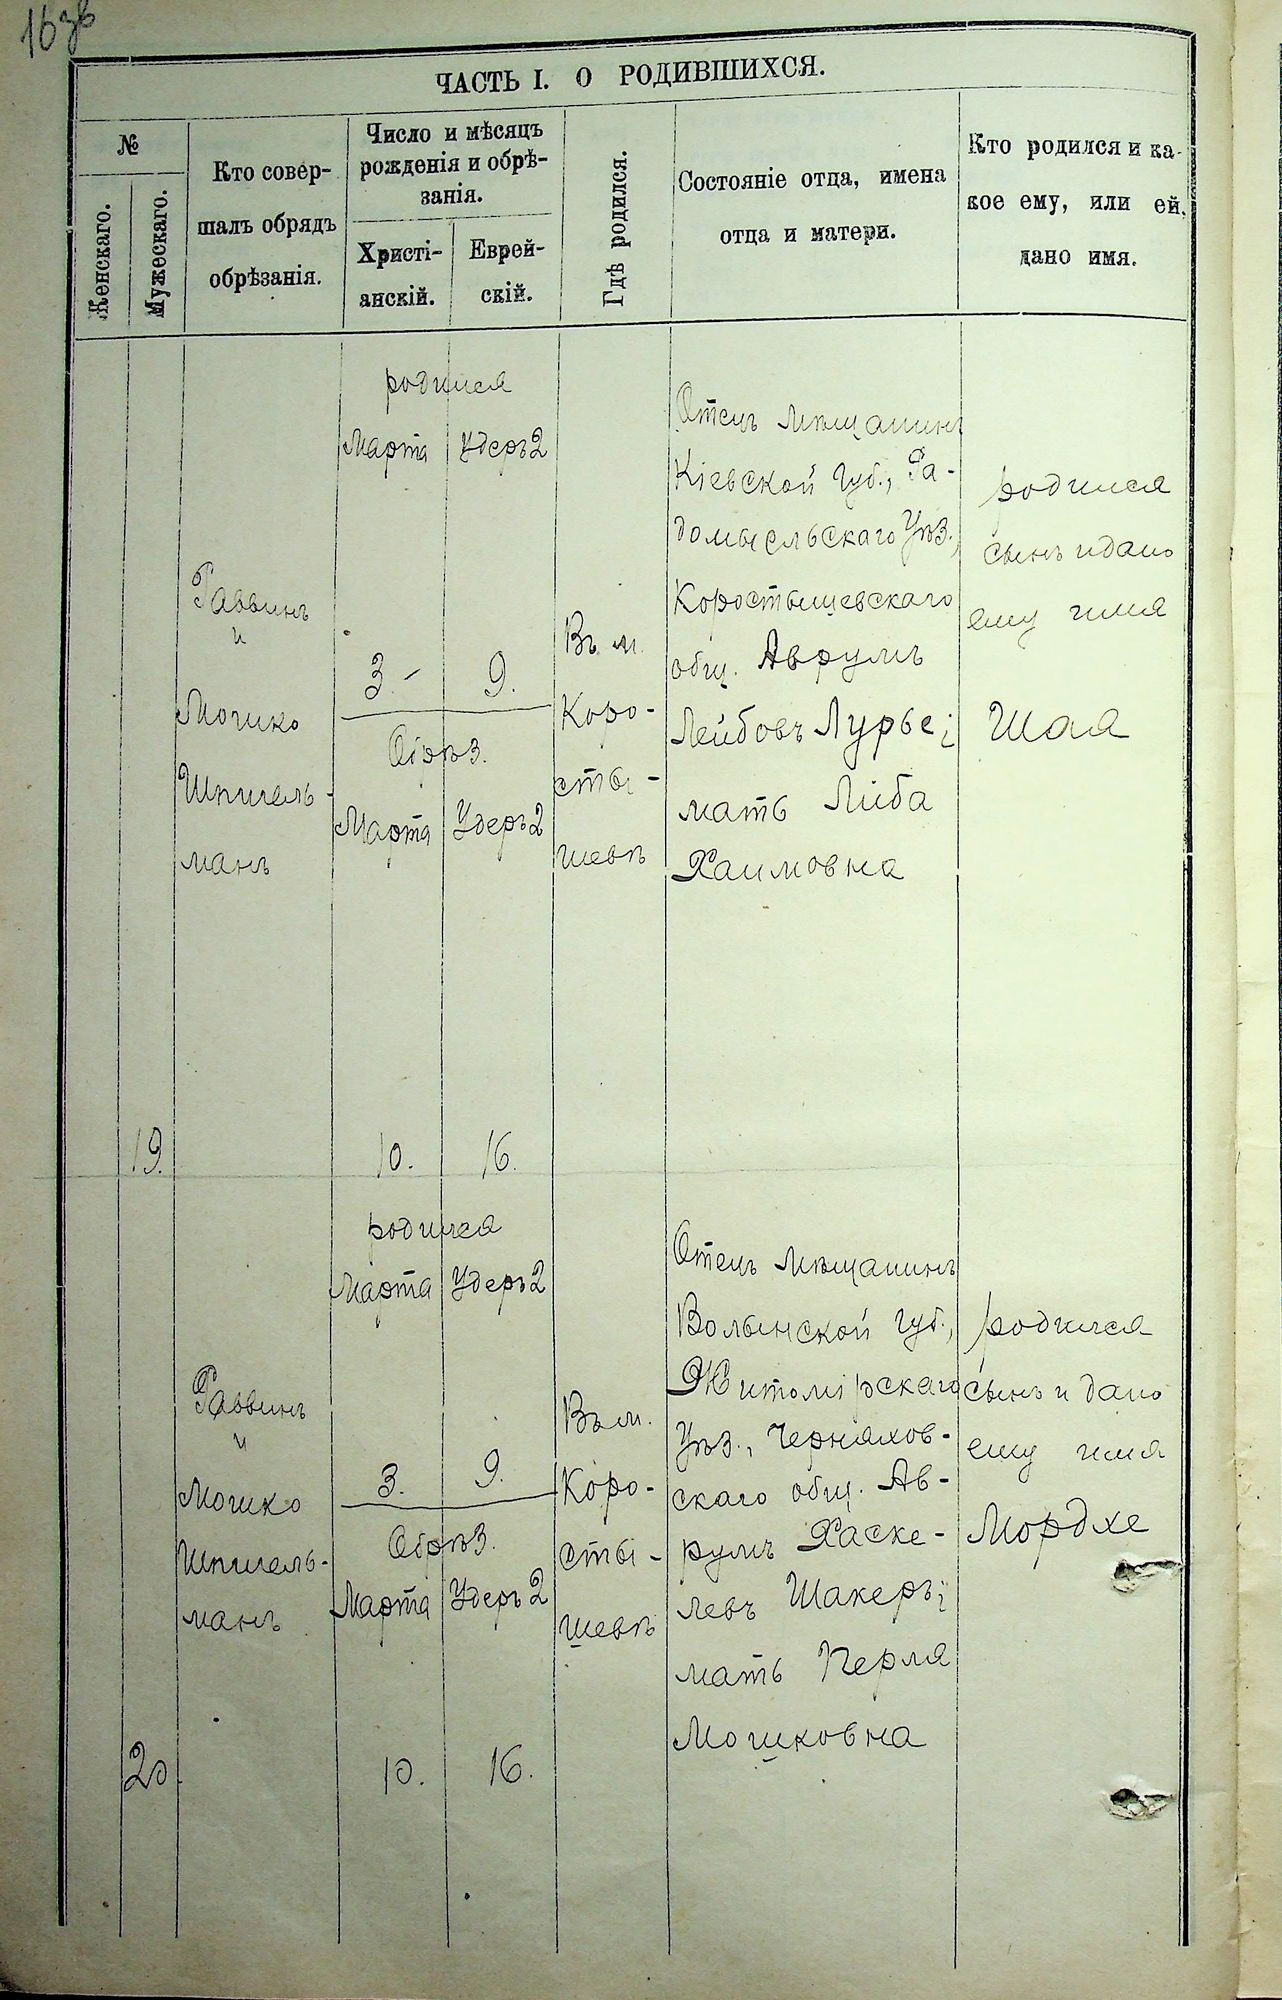 16 зв
ЧАСТЬ I. О РОДИВШИХСЯ.
№
Женскаго.
Мужескаго.
Кто совер-
шалъ обрядъ
обрѣзанія.
Число и мѣсяцъ
рожденія и обрѣ-
занія.
Христі-
анскій.
Еврей-
скій.
Гдѣ родился.
Состояніе отца, имена
отца и матери.
Кто родился и ка-
кое ему, или ей,
дано имя.
19.
Раввинъ
и
Мошко
Шпигель-
манъ
родился
Марта Удеръ 2
3. 9.
Обрѣз.
Марта Удеръ 2
10. 16.
Въ м.
Коро-
сты-
шевѣ
Отецъ мѣщанинъ
Кіевской губ., Ра-
домысльскаго Уѣз.,
Коростышевскаго
общ. Аврумъ
Лейбовъ Лурье;
мать Либа
Хаимовна
родился
сынъ и дано
ему имя
Шая
20.
Раввинъ
и
Мошко
Шпигель-
манъ
родился
Марта Удеръ 2
3. 9.
Обрѣз.
Марта Удеръ 2
10. 16.
Въ м.
Коро-
сты-
шевѣ
Отецъ мѣщанинъ
Волынской губ.,
Житомірскаго
Уѣз., Черняхов-
скаго общ. Ав-
румъ Хаске-
левъ Шакеръ;
мать Перля
Мошковна
родился
сынъ и дано
ему имя
Мордхе